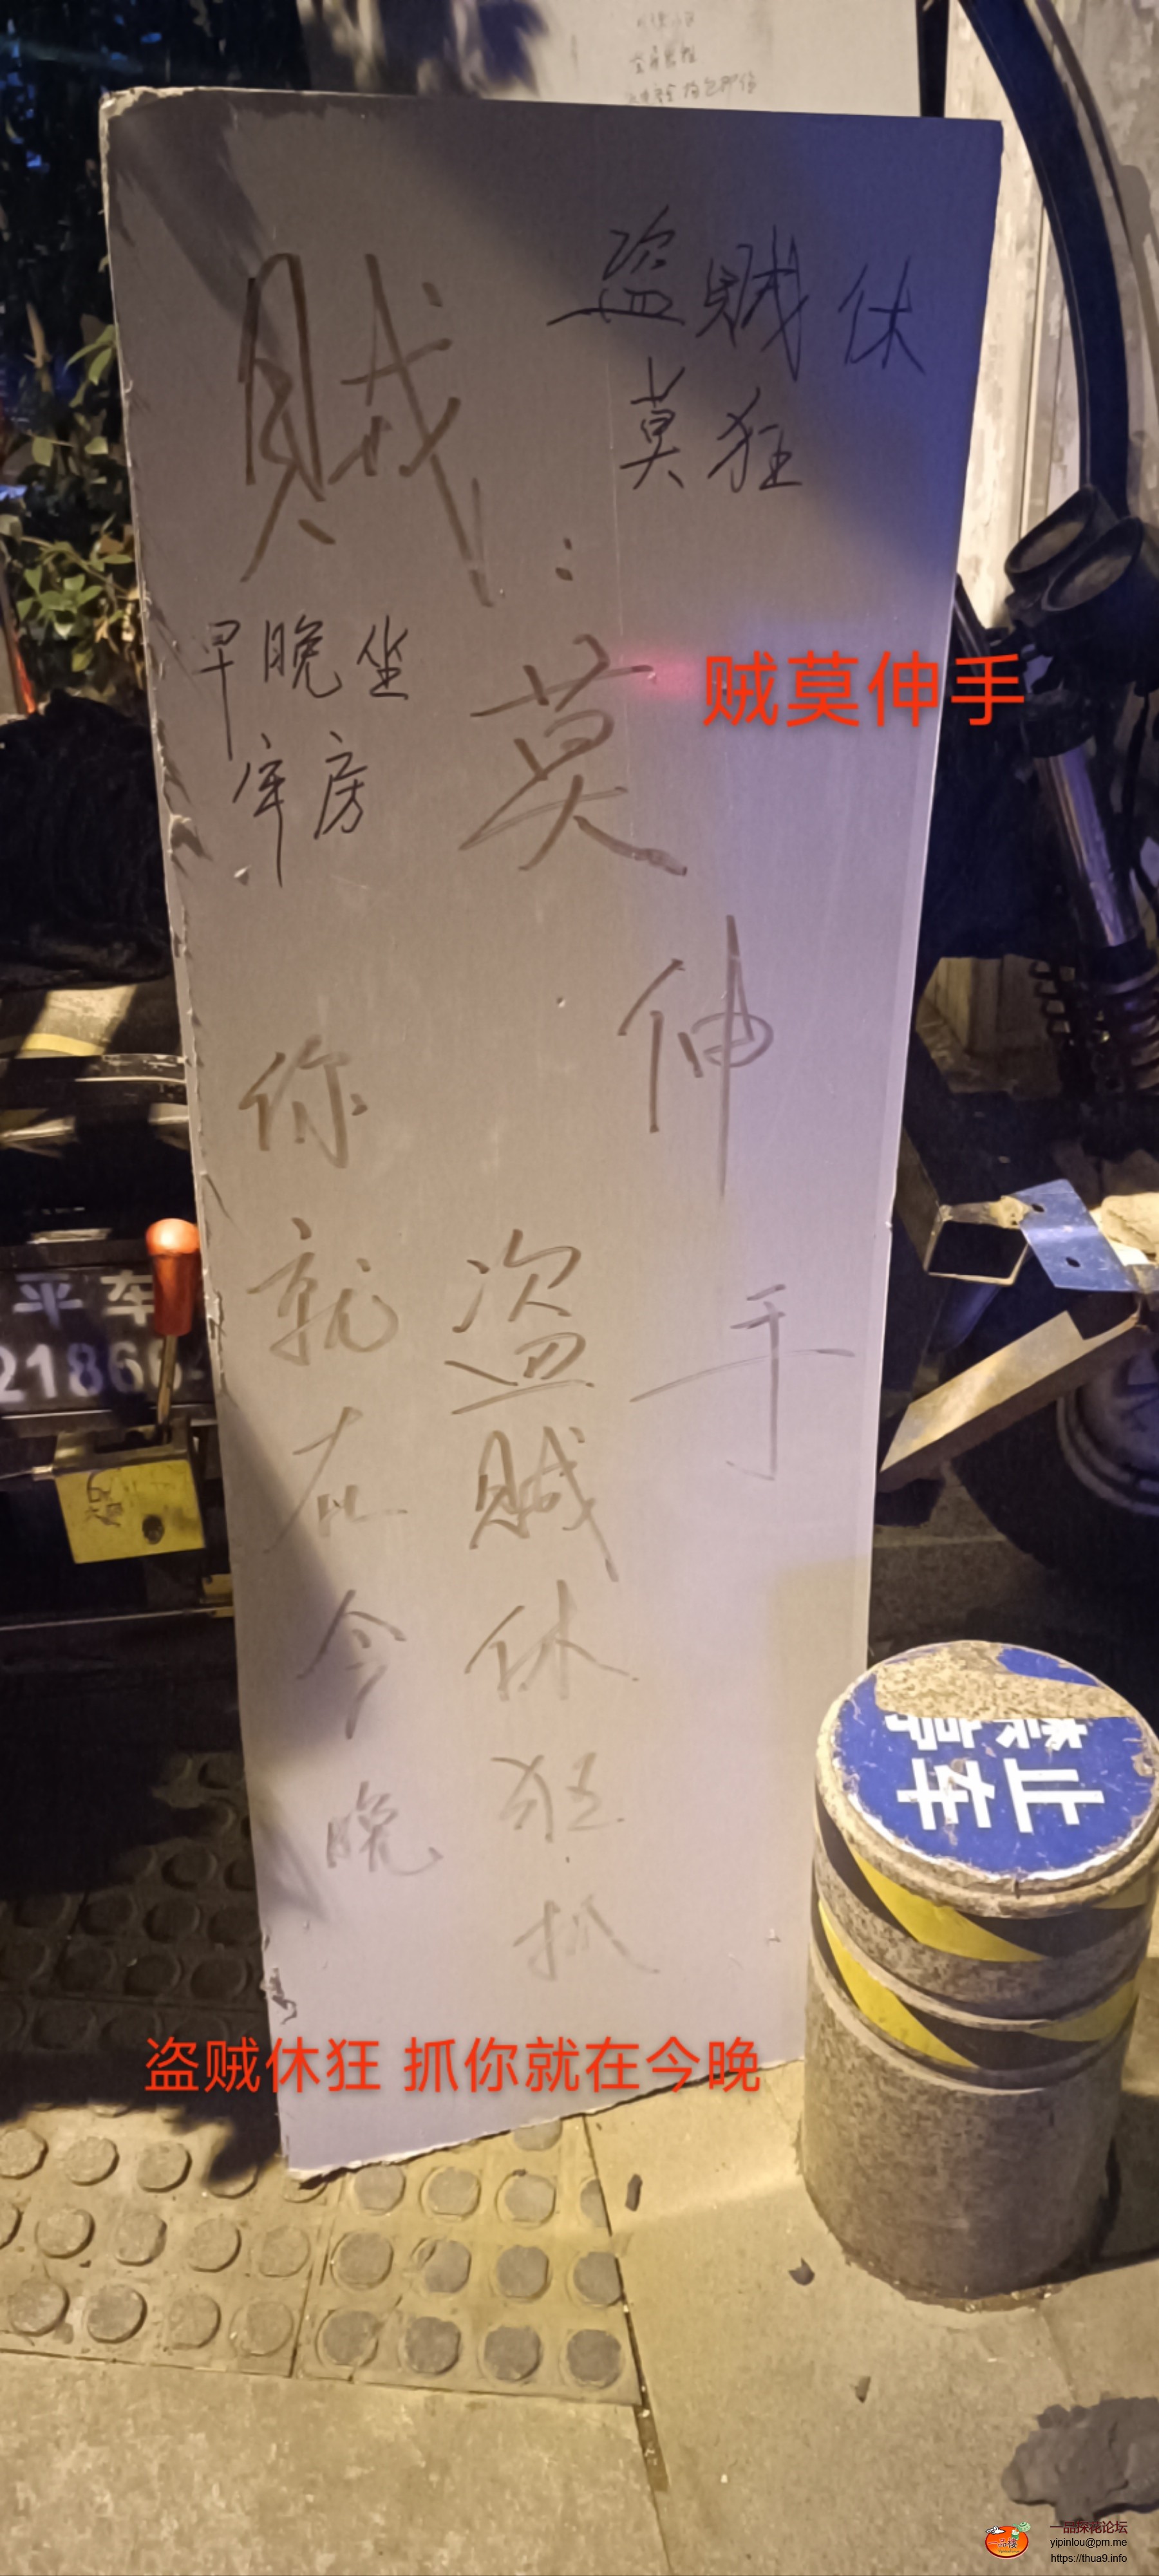 盗贼休
莫狂
贼:
早晚坐
牢房
莫
伸
手
贼莫伸手
盗
贼
休
狂
抓
你
就
在
今
晚
平车
盗贼休狂 抓你就在今晚
禁止
停车
一品探花论坛
yipinlou@pm.me
https://thua9.info